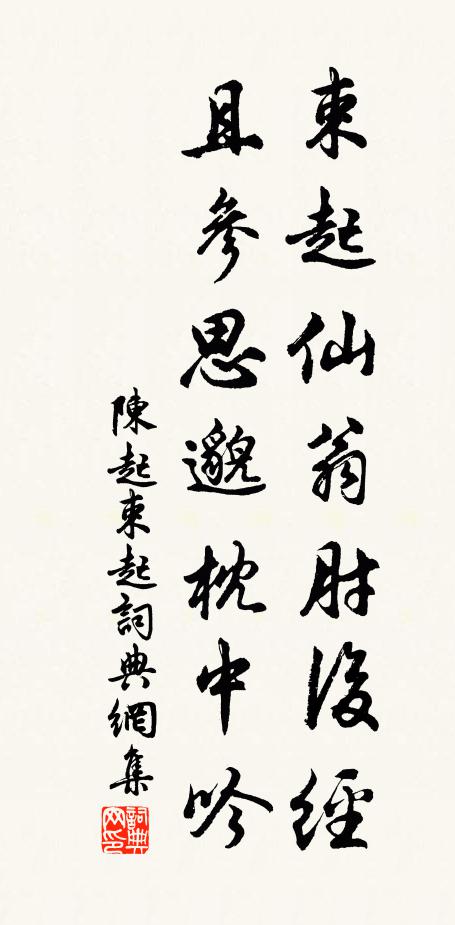 束起仙翁肘後經
且參思邈枕中吟
陳起束起詞典網集
詞典網印